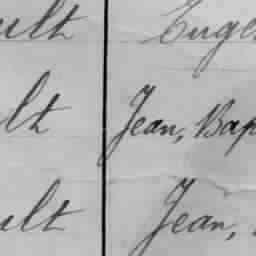 ult Euge
lt Jean, Bap
ult Jean,